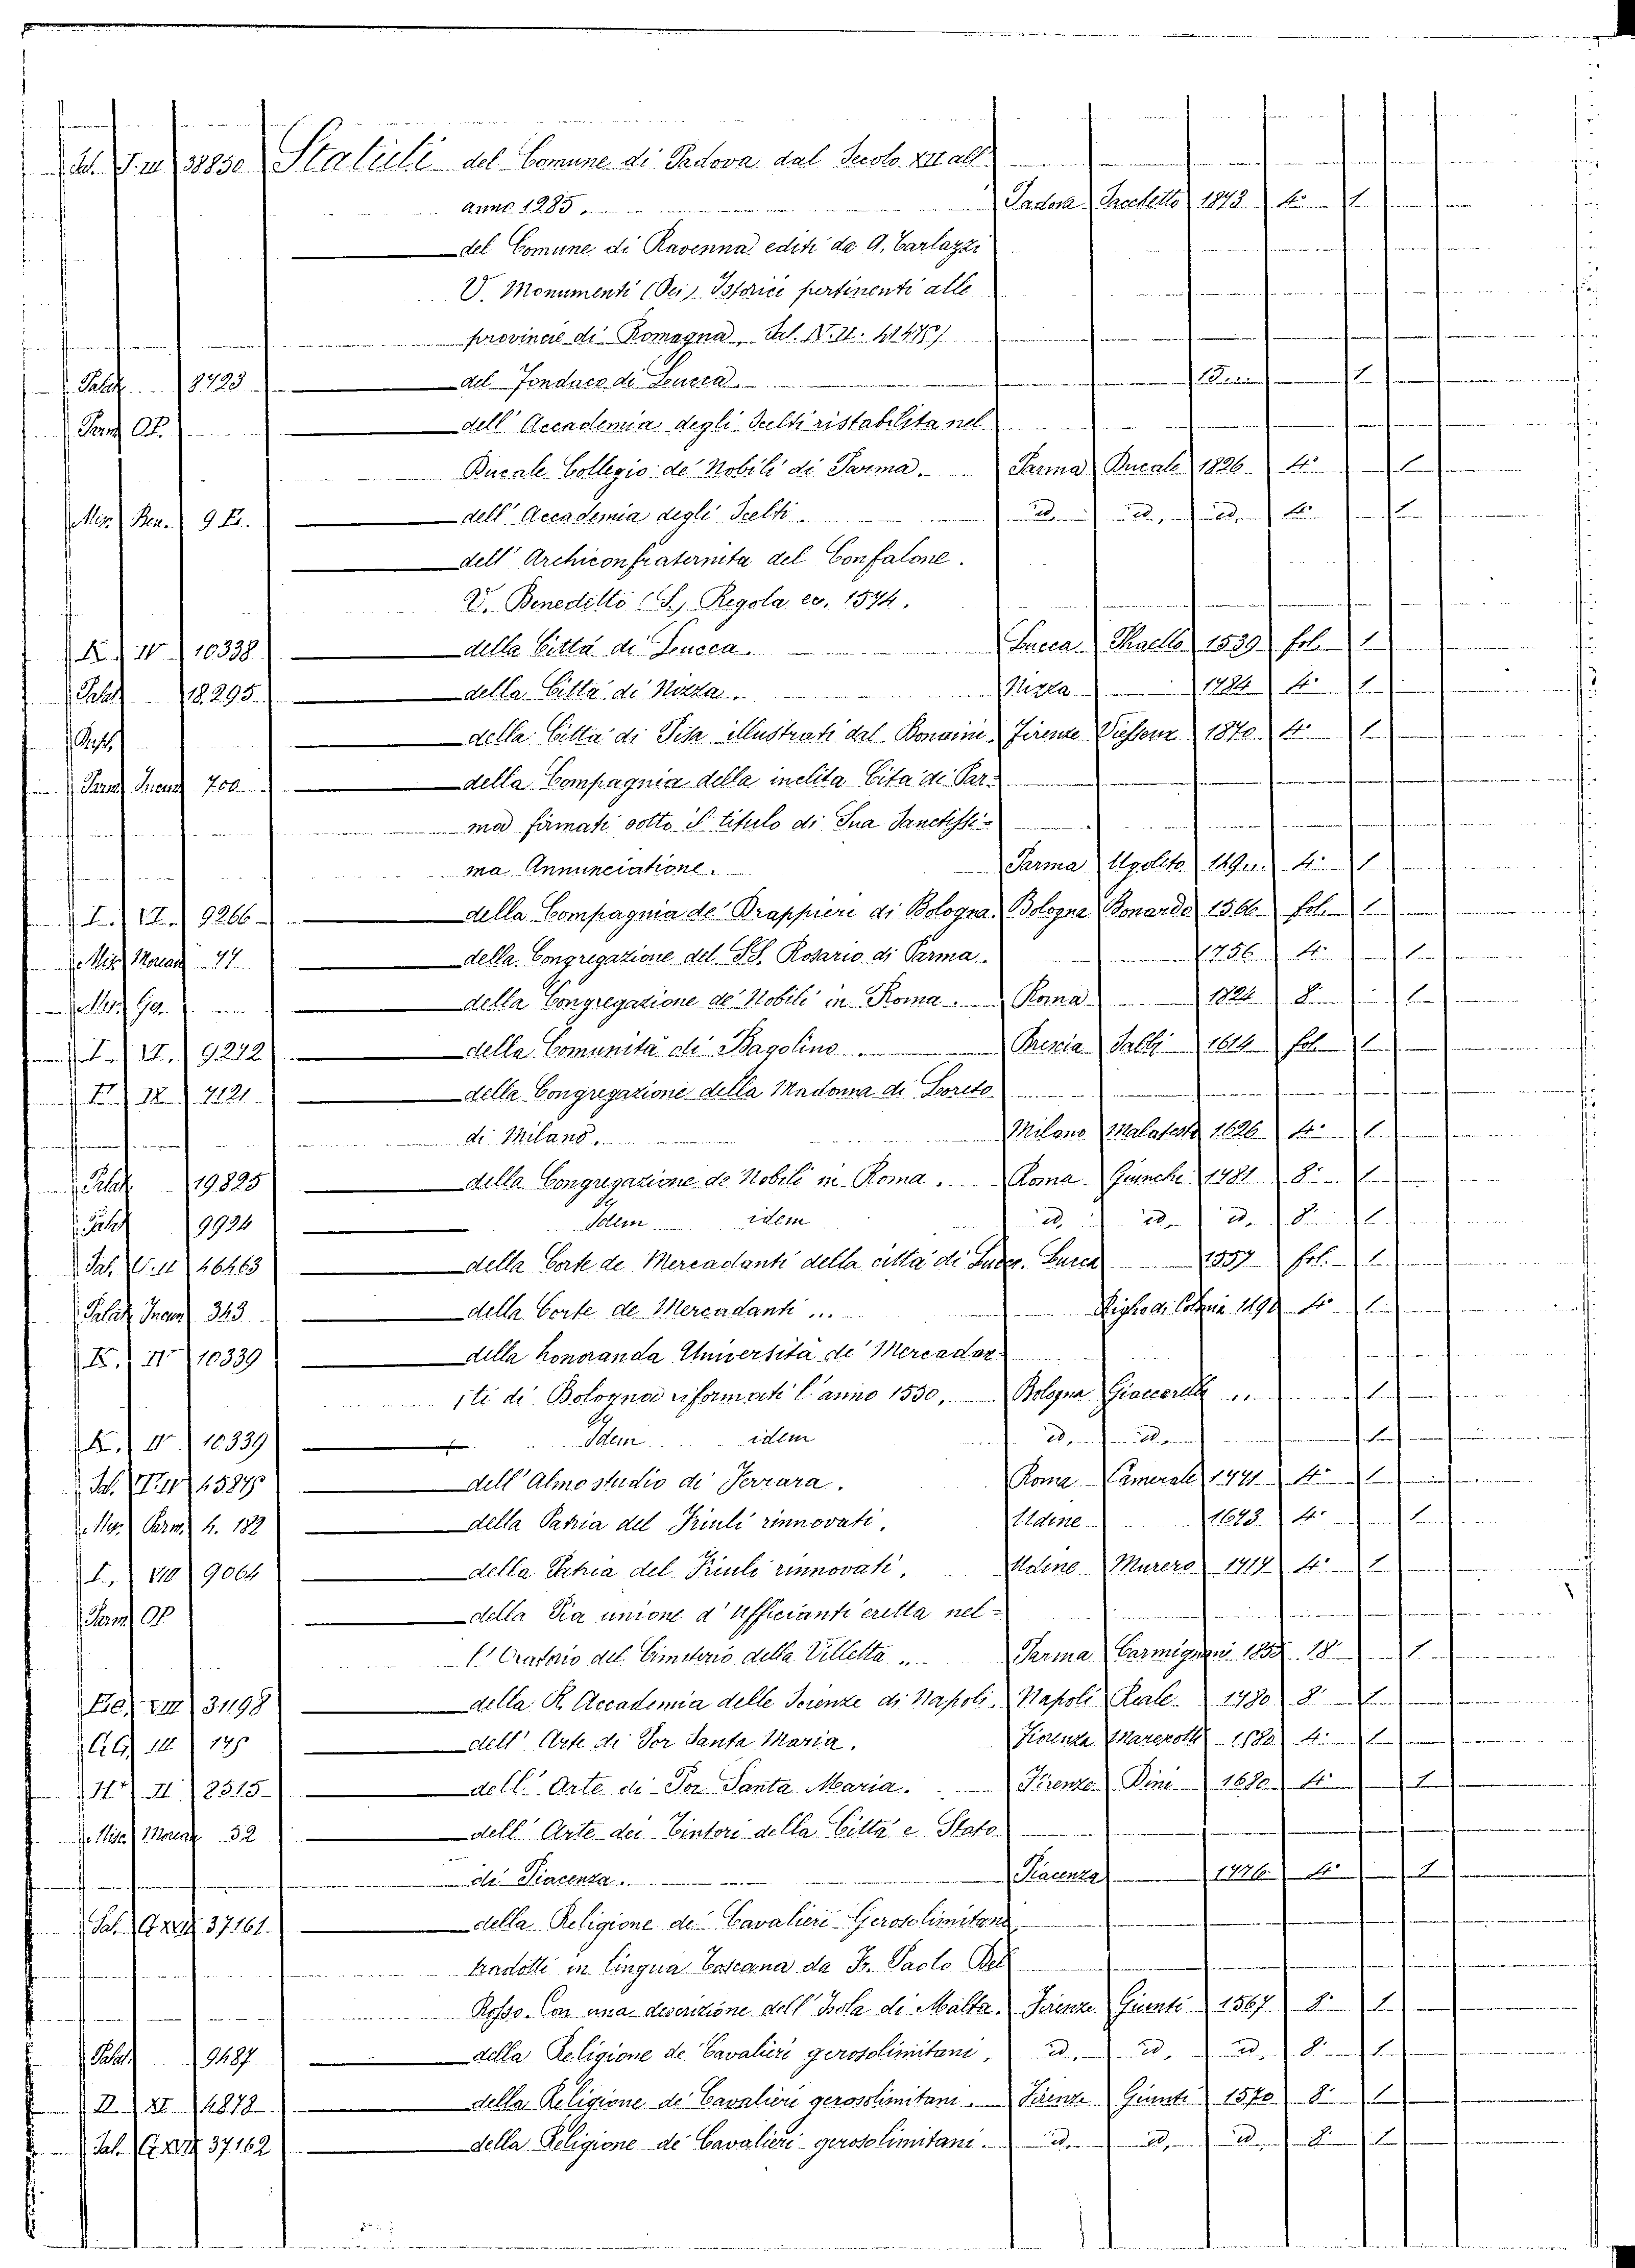 Sal. 38850 Statuti del Comune di Padova dal Secolo XII all'
anno 1285. Padova Sacchetto 1873 4° 1
del Comune di Ravenna editi da A. Tarlazzi
V. Monumenti (Dei) Istorici pertinenti alle
provincie di Romagna, Sal.
Palat. del Fondaco di Lucca. 1
Parm. Op. dell' Accademia degli Scelti ristabilita nel
Ducale Collegio de' Nobili di Parma. Parma Ducale 1826 4° 1
Misc. 9 dell' Accademia degli Scelti. id. id. id. 4° 1
dell' Archiconfraternita del Confalone.
V. Benedetto (S.) Regola ec. 1574.
K. IV 10338 della Città di Lucca. Lucca Phaello 1539 fol. 1
Palat. 18295 della Città di Nizza. Nizza 1784 4° 1
della Città di Pisa illustrati dal Bonaini. Firenze Viesseux 1870 4° 1
Parm. Incun. 700 della Compagnia della inclita Cita de Par-
ma firmati sotto il titulo di Sua Sanctissi-
ma Annunciatione. Parma Ugoleto 149.. 4° 1
I. VI. 9266 della Compagnia de' Drappieri di Bologna. Bologna Bonardo 1566 fol. 1
Misc. Moreau 47 della Congregazione del SS. Rosario di Parma. 1756 4° 1
Misc. della Congregazione de' Nobili in Roma. Roma 1824 8° 1
I. VI. 9272 della Comunità di Bagolino. Brescia Sabbj 1614 fol. 1
7121 della Congregazione della Madonna di Loreto
di Milano. Milano Malatesta 1626 4° 1
Palat. 19825 della Congregazione de Nobili in Roma. Roma Giunchi 1781 8° 1
Palat. 9924 Idem idem id. id. id. 8° 1
Sal. 46463 della Corte de Mercadanti della città di Lucca. Lucca 1557 fol. 1
Palat. Incun. 343 della Corte de Mercadanti ... Righo di Colonia 1490 4° 1
K. IV 10339 della honoranda Università de' Mercadan-
ti di Bologna riformati l'anno 1550. Bologna Giaccarelli .. 1
K. IV 10339 Idem idem id. id. 1
Sal. dell' Almo studio di Ferrara. Roma Camerale 1771 4° 1
Misc. Parm. 4. 182 della Patria del Friuli rinnovati. Udine 1673 4° 1
L. VIII 9064 della Patria del Friuli rinnovati. Udine Murero 1717 4° 1
Parm. Op. della Pia unione d' Ufficianti eretta nel-
l' Oratorio del Cimiterio della Villetta .. Parma Carmignani 1835 18° 1
31198 della R. Accademia delle Scienze di Napoli. Napoli Reale 1780 8° 1
dell' Arte di Por Santa Maria. Fiorenza 1580 4° 1
II 2515 dell' Arte di Por Santa Maria. Firenze Pini 1680 4° 1
Misc. Moreau 32 dell' Arte dei Tintori della Città e Stato
di Piacenza. Piacenza 1776 4° 1
Sal. 37161. della Religione de' Cavalieri Gerosolimitani
tradotti in lingua Toscana da Fr. Paolo Del
Rosso. Con una descrizione dell' Isola di Malta. Firenze Giunti 1567 8° 1
Palat. 9487 della Religione de Cavalieri gerosolimitani. id. id. id. 8° 1
XI 4878 della Religione de' Cavalieri gerosolimitani. Firenze Giunti 1570 8° 1
Sal. 37162 della Religione de' Cavalieri gerosolimitani. id. id. id. 8° 1